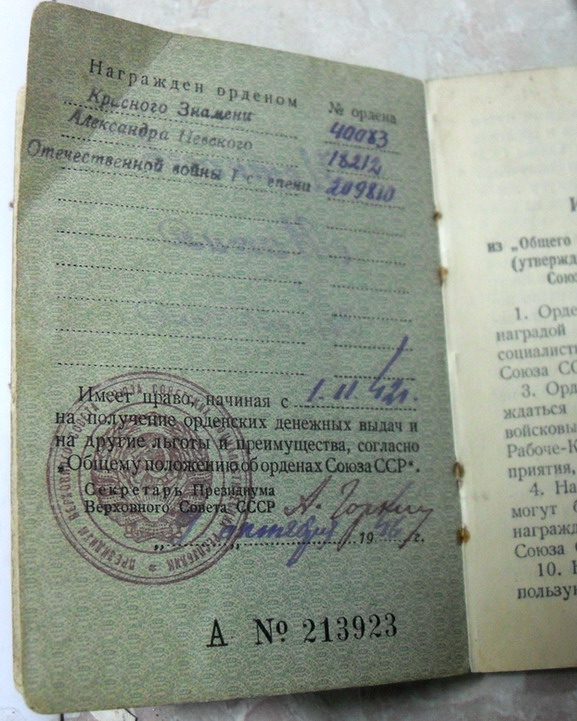 Награжден орденом
№ ордена
Красного Знамени 40083
Александра Невского 18212
Отечественной войны I степени 209810
Имеет право, начиная с 1. II. 42г.
на получение орденских денежных выдач и
на другие льготы и преимущества, согласно
„Общему положению об орденах Союза ССР“.
Секретарь Президиума
Верховного Совета СССР А. Горкин
„ “ октября 1946 г.
А № 213923
из „Общего
(утвержд
Союз
1. Орде
наградой
социалисти
Союза СС
3. Орд
ждаться
войсковы
Рабоче-К
приятия,
4. На
могут
награжд
Союза С
10.
пользую